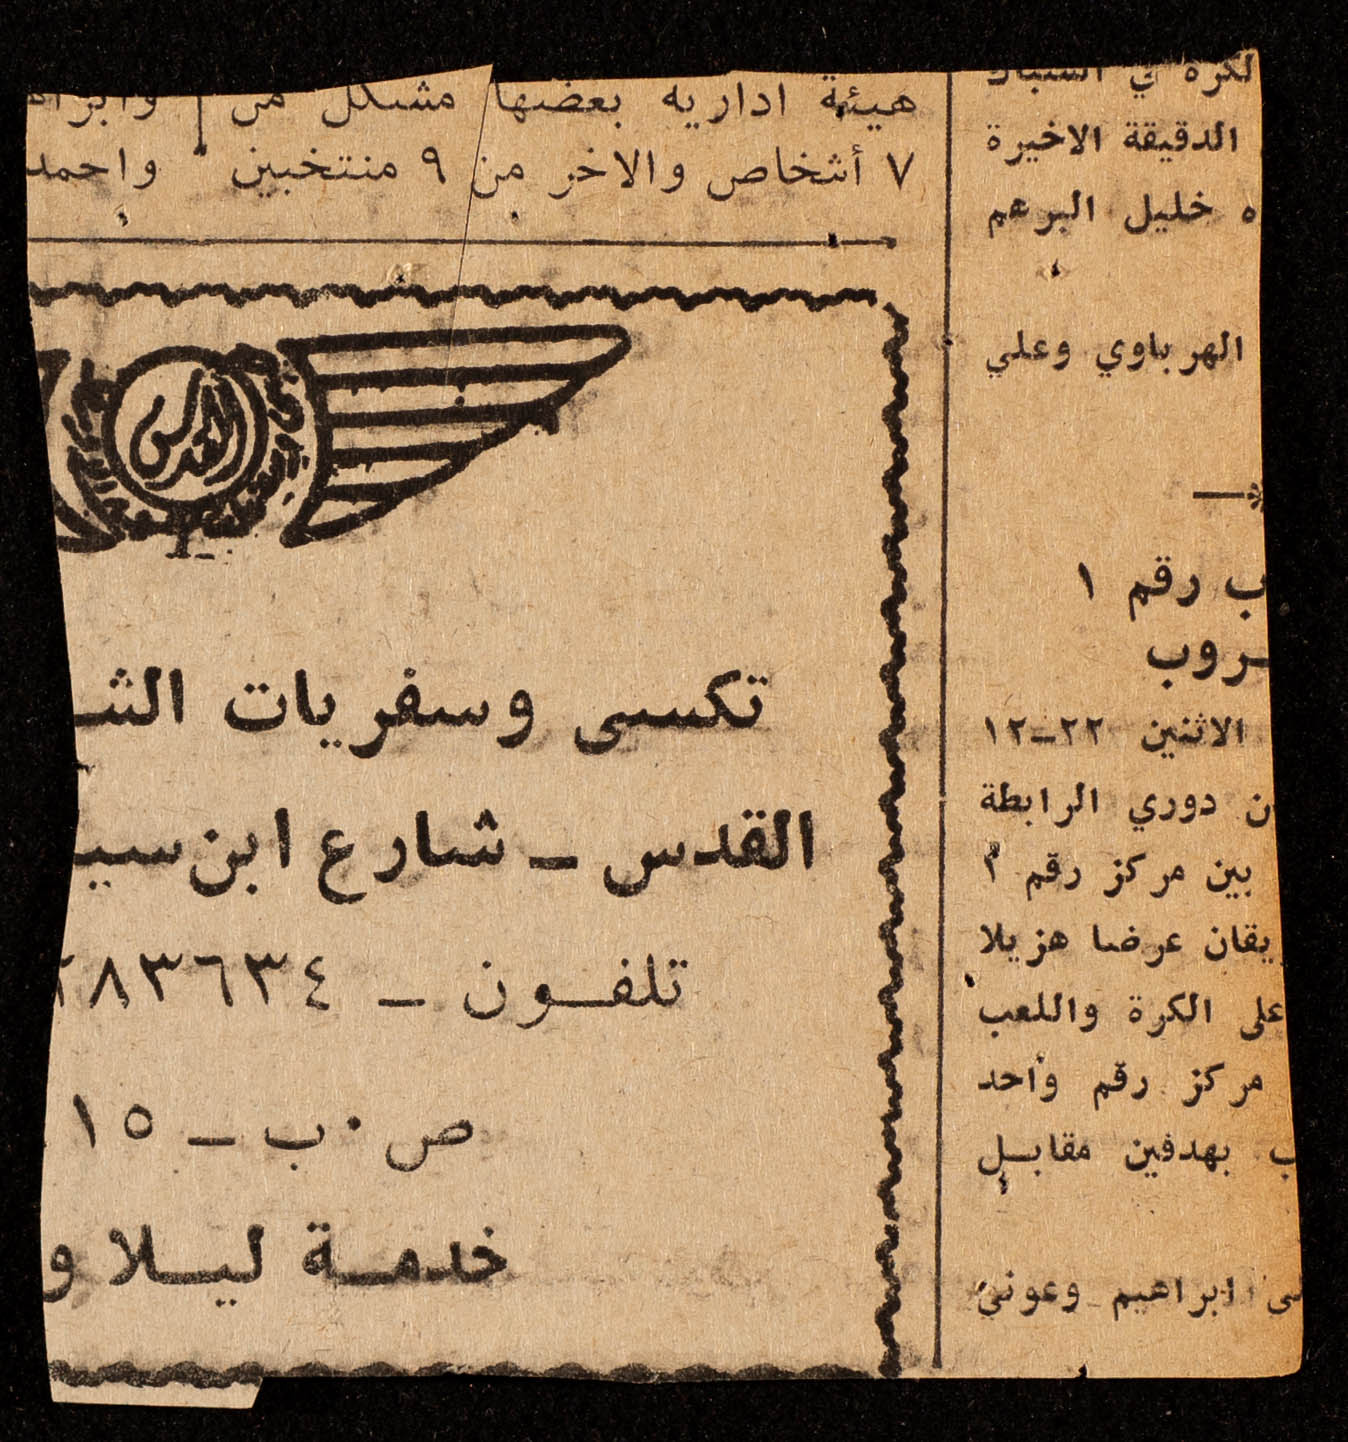 لكرة في الشباك
الدقيقة الاخيرة
ه خليل البرعم
الهرباوي وعلي
ب رقم ١
ـروب
الاثنين ٢٢-١٢
ن دوري الرابطة
بين مركز رقم ٢
يقان عرضا هزيلا
على الكرة واللعب
مركز رقم واحد
ب بهدفين مقابـل
ابراهيم وعوني
هيئة اداريه بعضها مشكل من
٧ أشخاص والاخر من ٩ منتخبين
وابراه
واحمد
القدس
تكسي وسفريات الشـ
القدس – شارع ابن سيـ
تلفــون – ٢٨٣٦٣٤
ص٠ب – ١٥
خدمــة ليــلا و